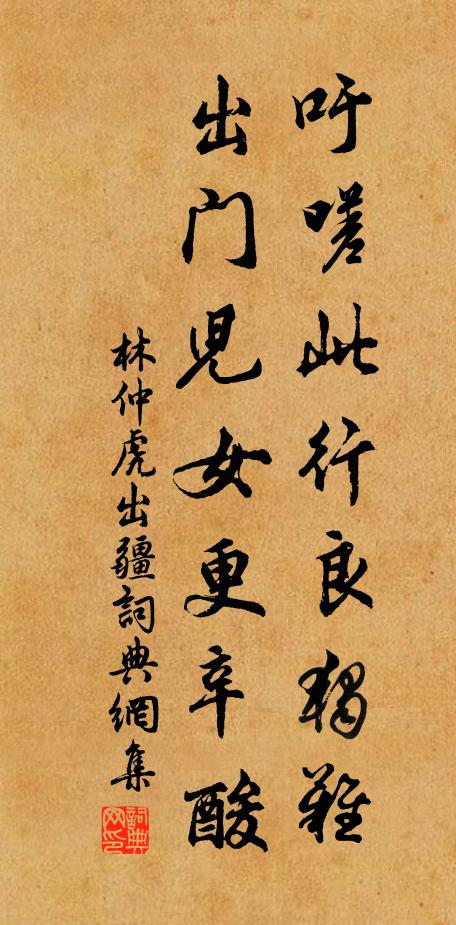 吁嗟此行良独難
出门兒女更辛酸
林仲虎出疆詞典網集
詞典网印